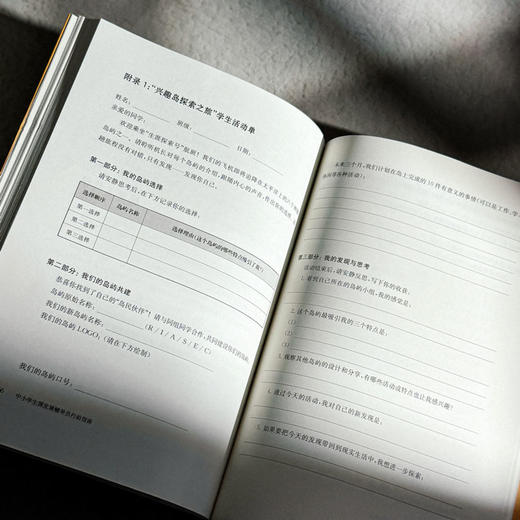 附录1:“兴趣岛探索之旅”学生活动单
姓名: 班级: 日期:
亲爱的同学:
欢迎乘坐“生涯探索号”航班!我们的飞机即将迫降在太平洋上的六个神奇
岛屿之一。请聆听机长对每个岛屿的介绍,跟随内心的声音,作出你的选择。
趟旅程没有对错,只有发现——发现你自己。
第一部分:我的岛屿选择
请安静思考后,在下方记录你的选择。
选择顺序 岛屿名称 选择理由(这个岛屿的哪些特点吸引了我?)
第一选择
第二选择
第三选择
第二部分:我们的岛屿共建
恭喜你找到了自己的“岛民伙伴”!请与同组同学合作,共同建设我们的岛屿。
岛屿原始名称: (R/I/A/S/E/C)
我们的新岛屿名称:
我们的岛屿LOGO:(请在下方绘制)
我们的岛屿口号:
6 中小学生涯发展辅导员行动指南
未来三个月,我们计划在岛上完成的10件有意义的事情(可以是工作、学
休闲等各种活动):
第三部分:我的发现与思考
活动结束后,请安静反思,写下你的收获。
1. 看到自己所在的岛屿小组,我的感觉是:
2. 这个岛屿最吸引我的三个特点是:
(1)
(2)
(3)
3. 观察其他岛屿的设计和分享,有哪些活动或特点也让我感兴趣?
4. 通过今天的活动,我对自己的新发现是:
5. 如果要把今天的发现带回到现实生活中,我想进一步探索: